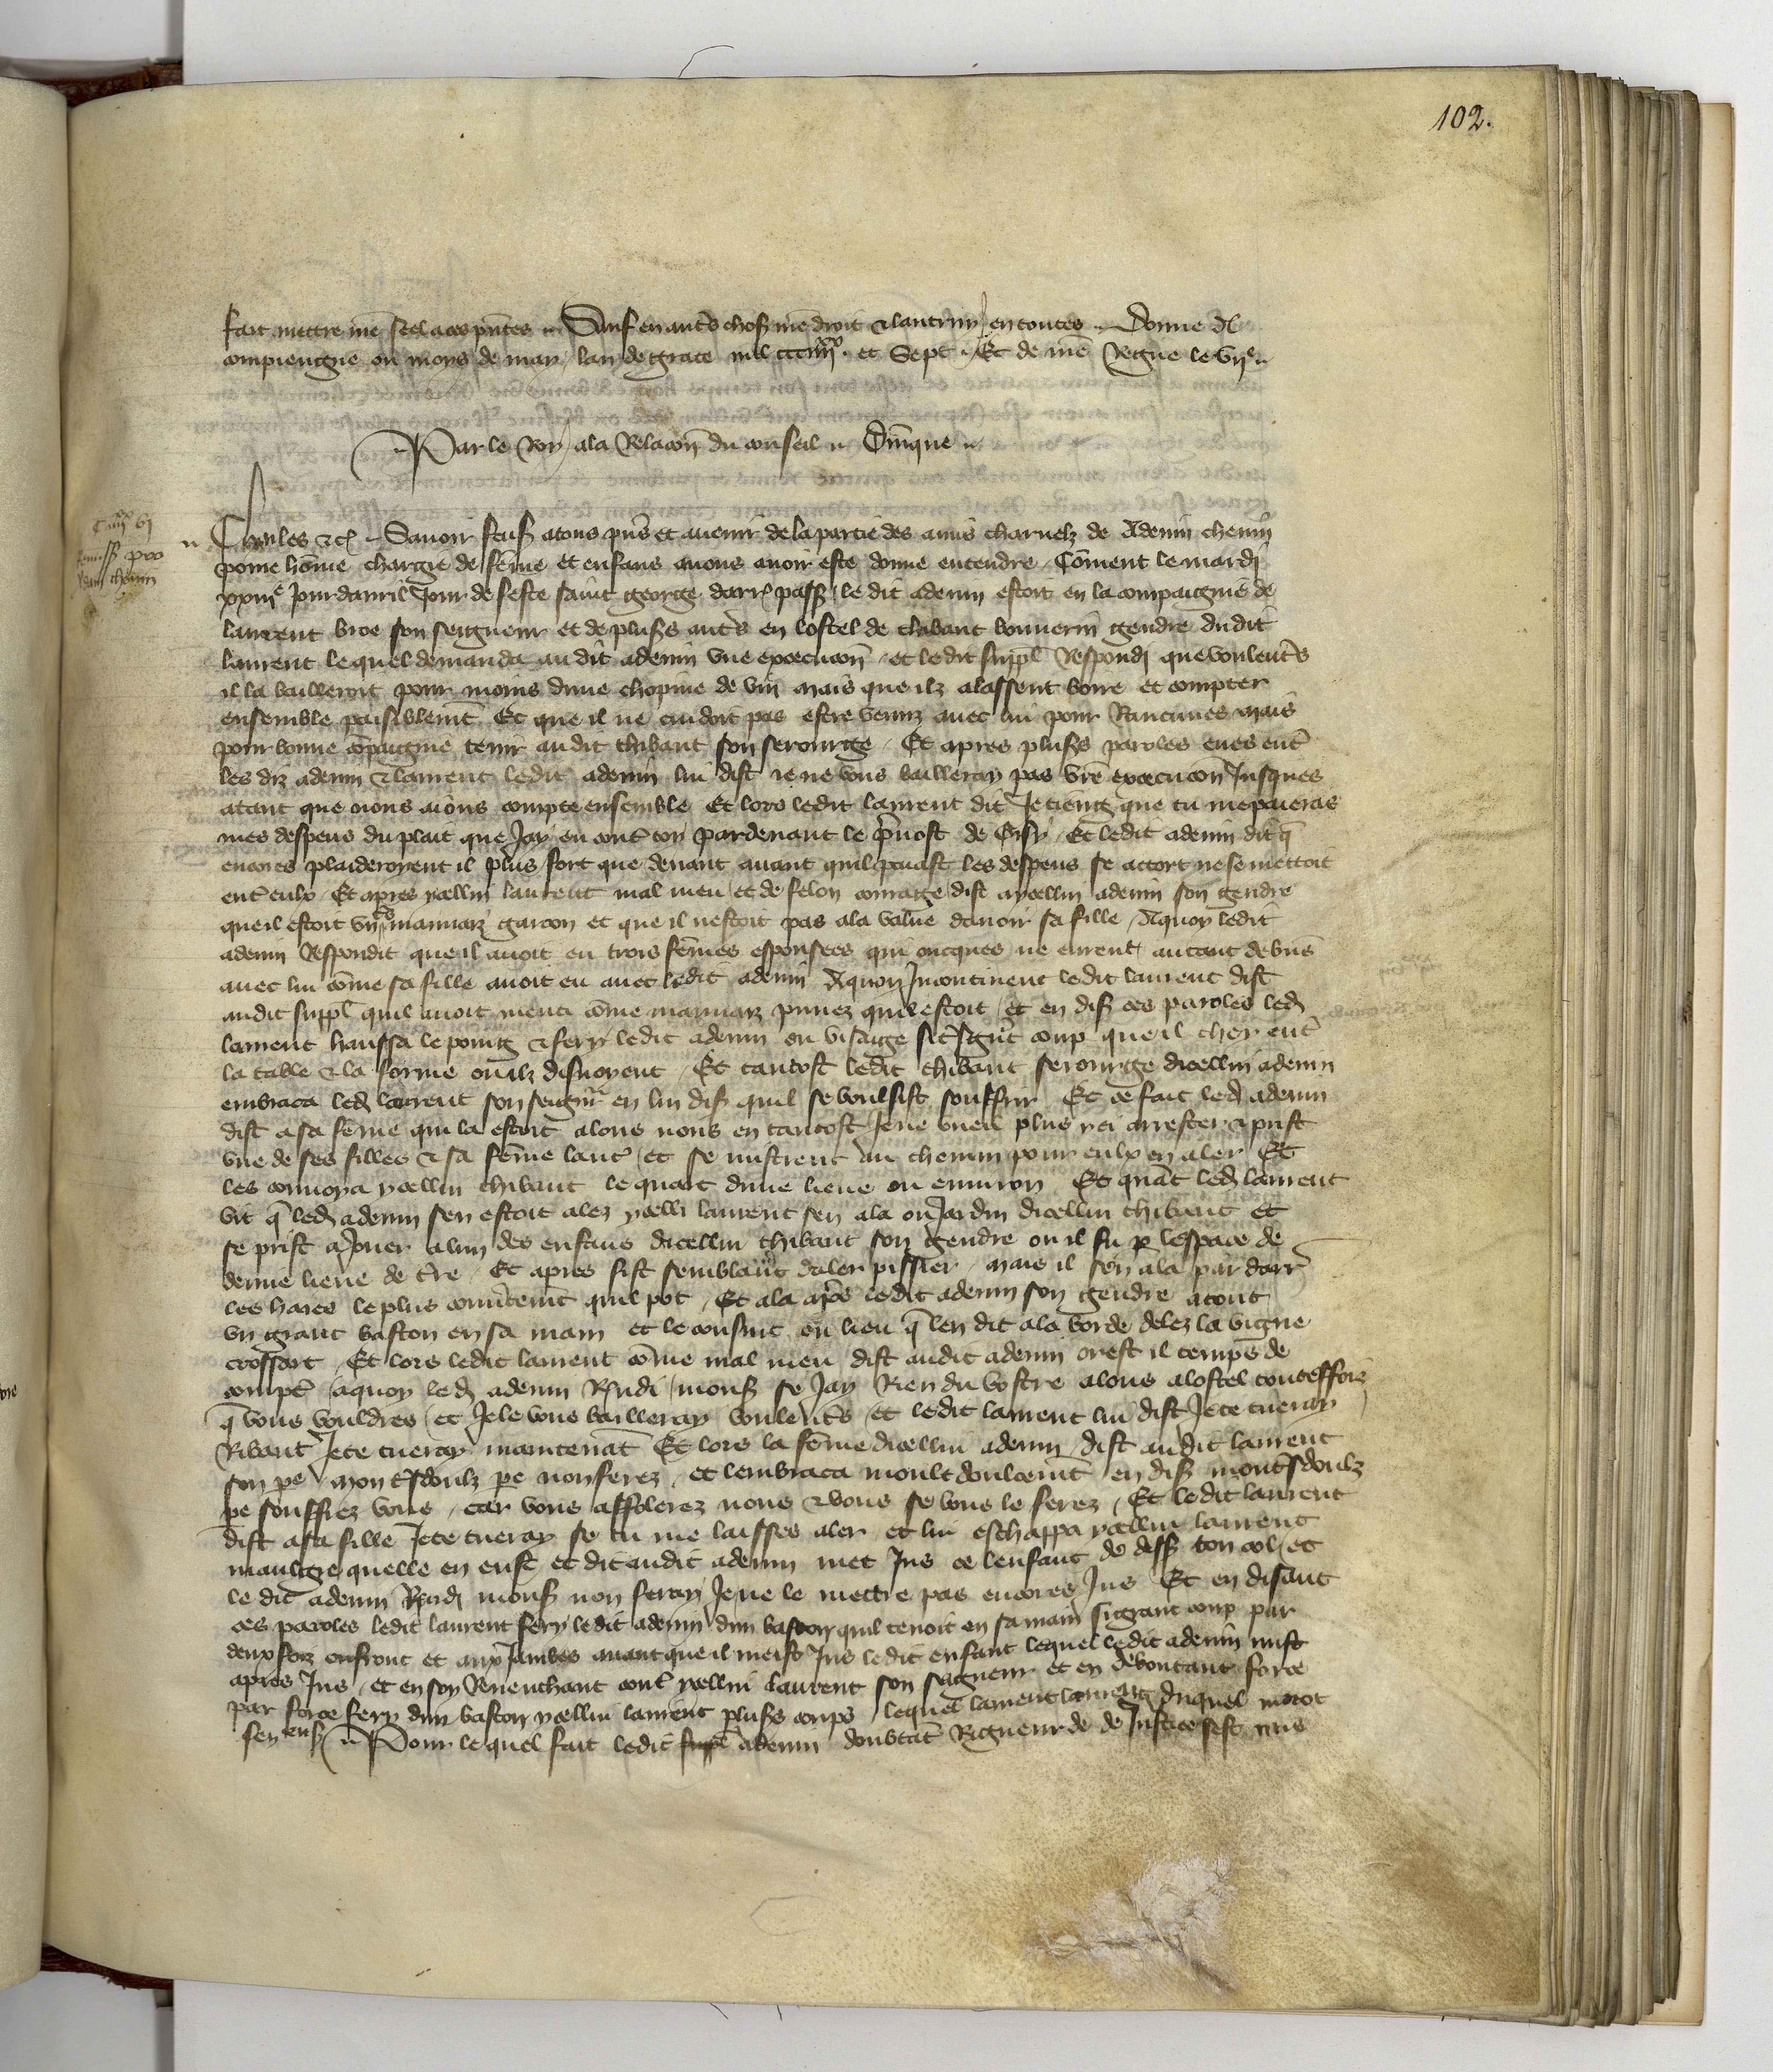 102.
fait mettre nre seel a ces pntes .. Sauf en autres choses nre droit & lautruy en toutes .. Donne a
compiengne ou mois de may lan de grace mil ccc iiii^xx. et sept .. Et de nre Regne le vii^e ..
Par le Roy a la Relacon du conseil ..
C iiii^xx vi
Remiss pro
Adam chemin
Charles &c Savoir faisons a tous pns et avenir de la partie des amis charnelz de Ademin chemin
povre homme chargie de femme et enfans a nous avoir este donne entendre Coment le mardi
xxiii^e Jour davril Jour de feste saint george darr passe le dit ademin estoit en la compaignie de
laurent broe son seigneur et de plusrs autres en lostel de thibaut gendre dudit
laurent lequel demanda audit ademin une execucon et ledit suppl Respondi que voulentrs
il la bailleroit pour moins dune chopine de vin mais que ilz alassent boire et compter
ensemble paisiblement Et que il ne cuidoit pas estre venuz avec lui pour Rancunes mais
pour bonne compaignie tenir audit thibaut son serourge Et apres plusrs paroles eues entre
les diz ademin & laurent ledit ademin lui dist Je ne vous bailleray pas vre execucon Jusques
atant que nous aions compte ensemble Et lors ledit laurent dit Je tieng que tu me paieras
mes despens du plait que Jay eu contre toy pardevant le prevost de Et ledit ademin dit q
encores plaideroyent il plus fort que devant avant quil paiast les despens se accort ne se mettoit
entre eulx Et apres ycellui laurent mal meu et de felon courage dist a ycellui ademin son gendre
que il estoit un mauvaiz garcon et que il nestoit pas a la value davoir sa fille A quoy ledit
ademin Respondit que il avoit eu trois femmes espousees qui oncques ne eurent autant de biens
avec lui comme sa fille avoit eu avec ledit ademin A quoy Incontinent ledit laurent dist
audit suppl quil avoit menti comme mauvaiz punez quil estoit et en dis ces paroles led
laurent haussa le poing & fery ledit ademin ou visaige si grant coup que il chey entre
la table & la forme ou ilz disnoyent Et tantost ledit thibaut serourge dicellui ademin
embraca led laurent son seigneur en lui dis quil se voulsist souffrir Et ce fait led ademin
dist a sa femme qui la estoit alons nous en tantost Je ne vueil plus yci arrester & prist
une de ses filles & sa femme lautre et se mistrent au chemin pour eulx en aler Et
les convoya ycellui thibaut le quart dune lieue ou environ Et quant led laurent
vit q led ademin sen estoit alez ycelli laurent sen ala ou Jardin dicellui thibaut et
se prist a Jouer a lun des enfans dicellui thibaut son gendre ou il fu p lespace de
demie lieue de terre Et apres fist semblant daler pissier mais il sen ala par darr
les haies le plus quil pot Et ala apres ledit ademin son gendre atout
un grant baston en sa main et le consuit en lieu q len dit a la borde delez la vigne
crossart Et lors ledit laurent comme mal meu dist audit ademin orest il temps de
compter a quoy led ademin Rndi mons se Jay Rien du vostre alons a lostel touteffoiz
q vous vouldres et Je le vous bailleray voulentrs et ledit laurent lui dist Je te tueray
Ribaut Je te tueray maintenant Et lors la femme dicellui ademin dist audit laurent
son pe mon tsdoulz pe non ferez et lembraca moult doulcemt en dis mon tsdoulz
pe souffrez vous car vous affolerez nous & vous se vous le ferez Et ledit laurent
dist a sa fille Je te tueray se tu me laisses aler et lui eschappa ycellui laurent
maulgre quelle en eust et dit audit ademin met Jus ce lenfant de dess ton col et
le dit ademin Rndi mons non feray Je ne le mettre pas encores Jus Et en disant
ces paroles ledit laurent fery ledit ademin dun baston quil tenoit en sa main si grant coup par
deux foiz ou front et aux Jambes avant que il meist Jus ledit enfant lequel ledit ademin mist
apres Jus et en soy Revenchant contre ycellui laurent son seigneur et en deboutant force
par force fery dun baston ycellui laurent plusrs coups lequel laurent laurent duquel mort
sen ens .. Pour lequel fait ledit suppl ademin doubtant Rigueur de de Justice sest mis